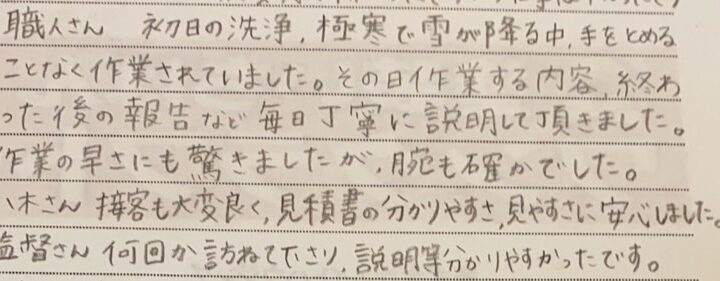 職人さん 初日の洗浄,極寒で雪が降る中,手をとめる
ことなく作業されていました。その日作業する内容,終わ
った後の報告など毎日丁寧に説明して頂きました。
作業の早さにも驚きましたが,腕も確かでした。
木さん 接客も大変良く,見積書の分かりやすさ,見やすさに安心しました。
監督さん 何回か訪ねて下さり,説明等分かりやすかったです。